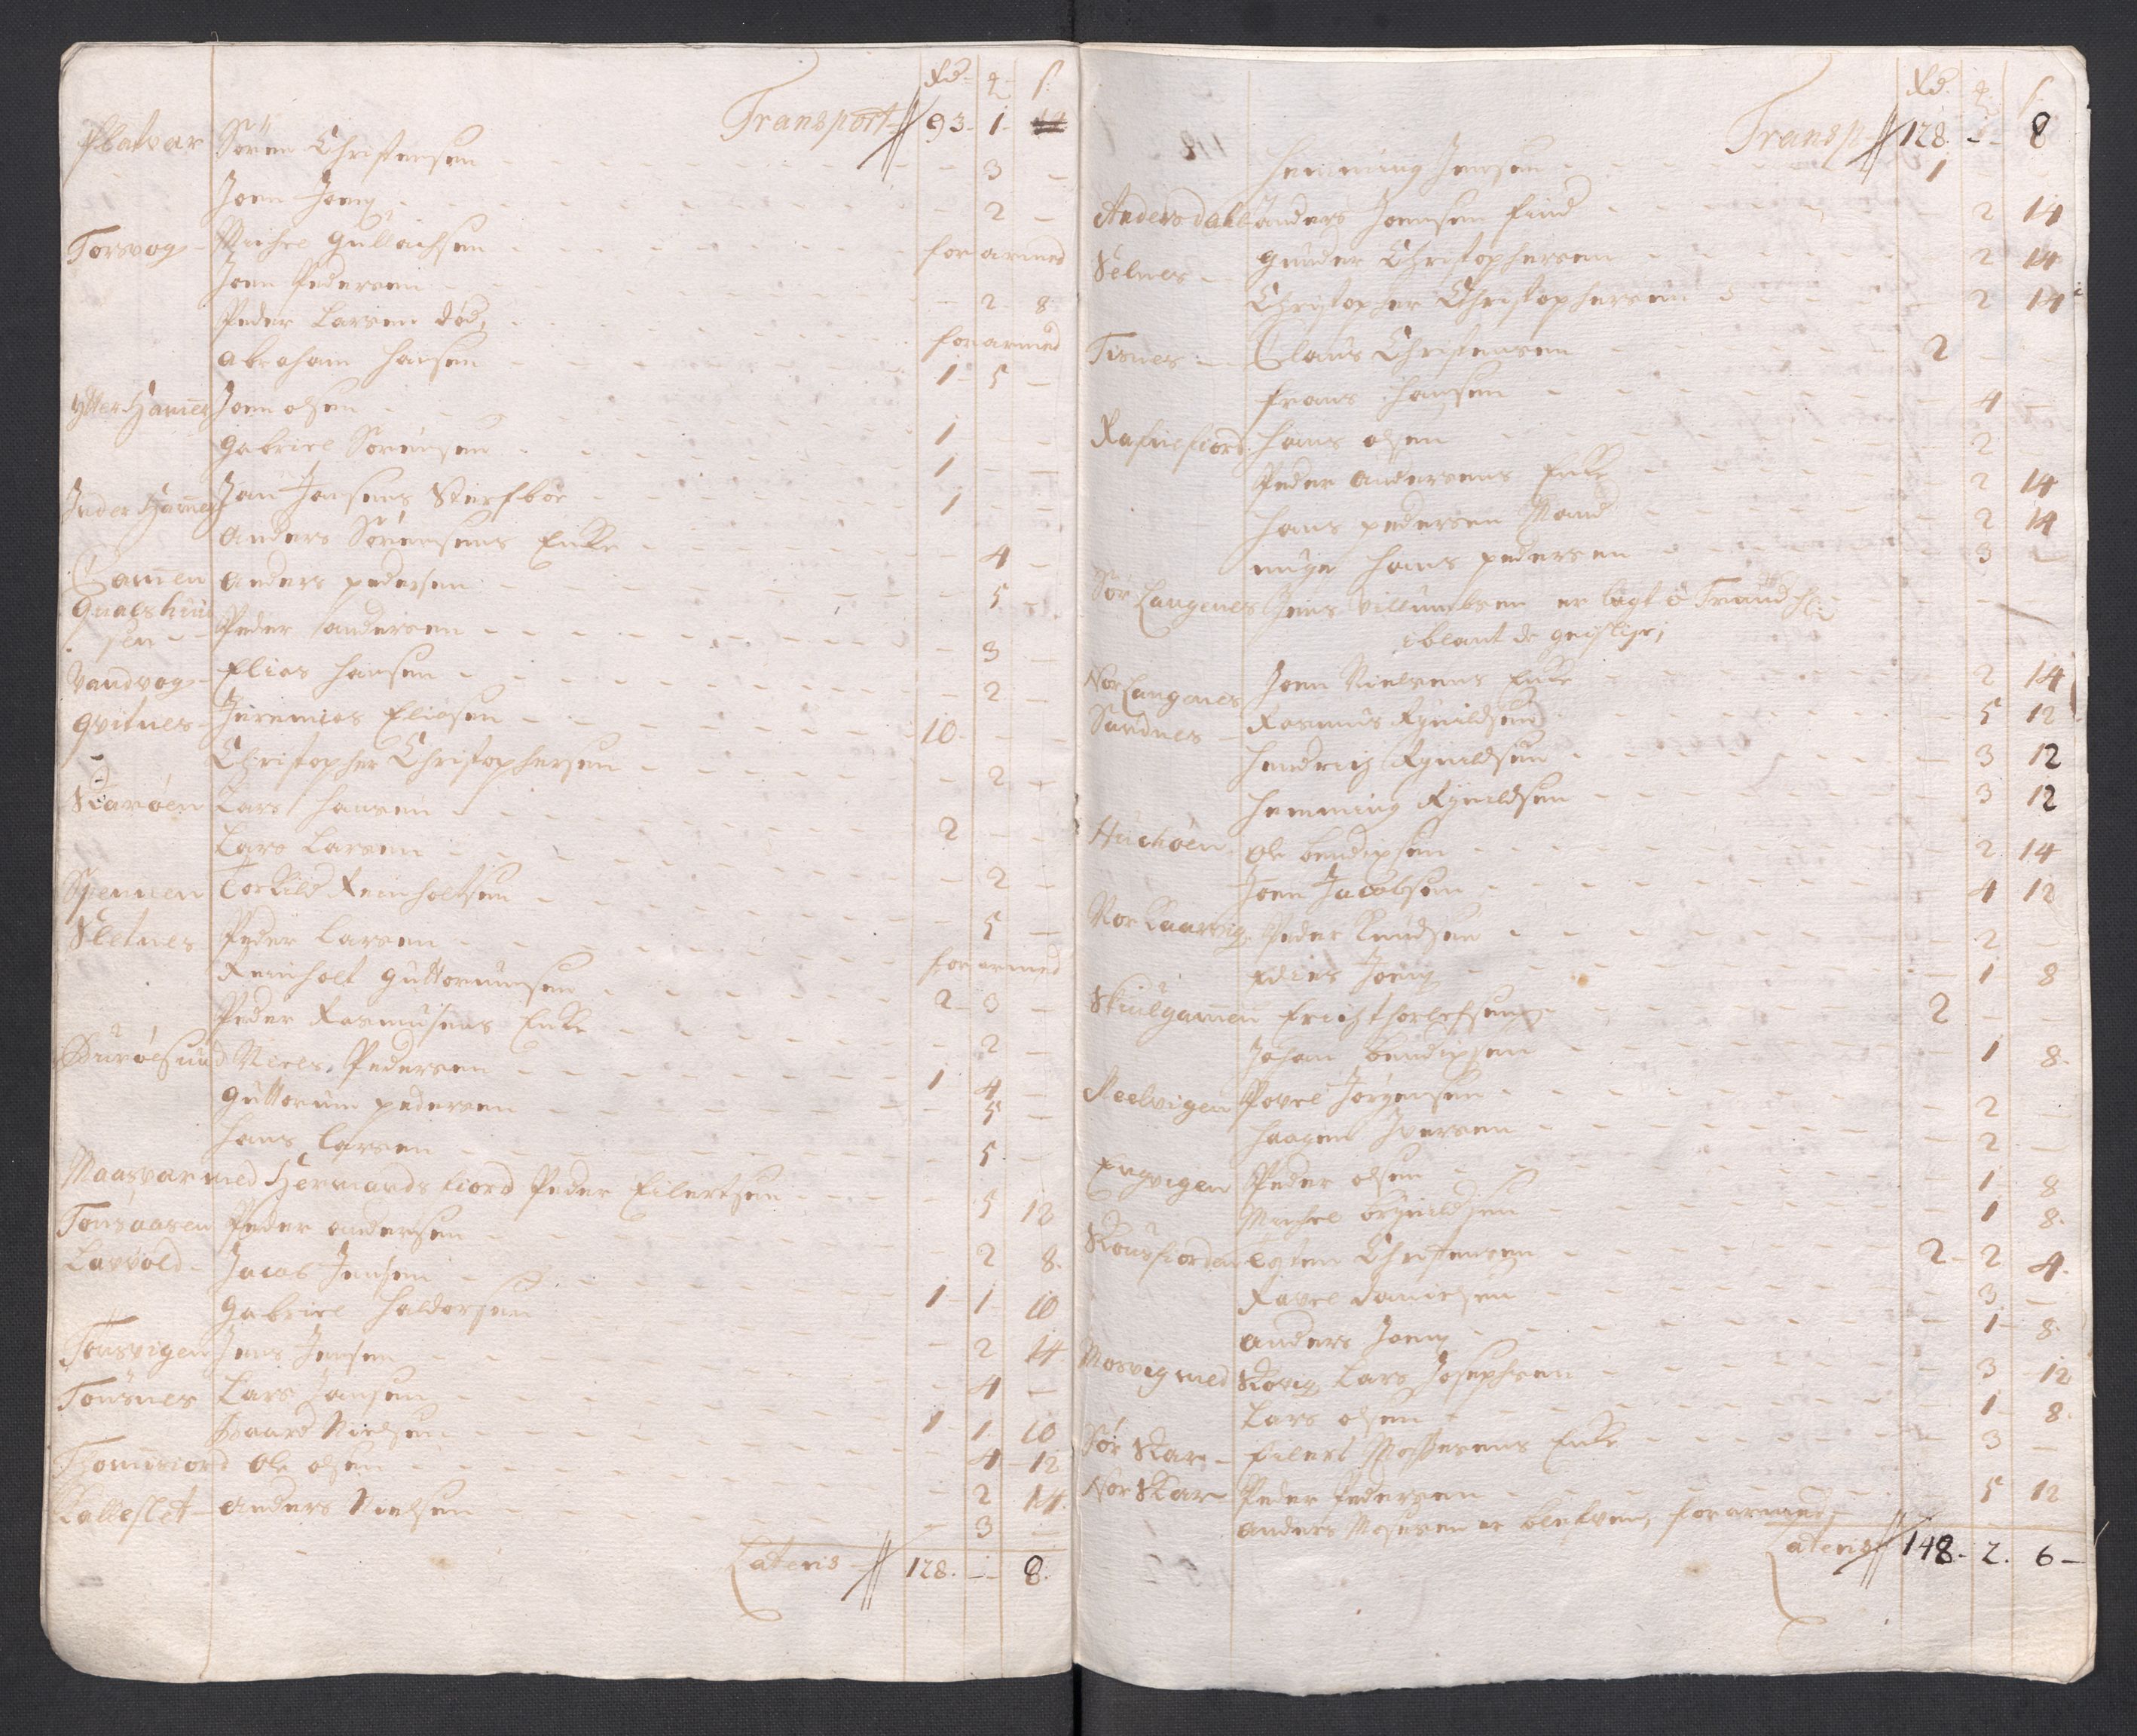 Rd. ꝗ ſ.
Transport // 93. 1.
Flatvær Sören Christensen - 3 -
Joen Joens. - 2 -
Torsvog Michel Gullachsen forarmed
Joen Pedersen - 2. 8.
Peder Larsen död, forarmed
Abraham Hansen 1. 5 -
Ytter Hamer Joen Olsen 1 - -
Gabriel Sörensen 1 - -
Inder Hamer Jan Jansens Sterfboe 1 - -
Anders Sörensens Enke - 4 -
Camen Anders Pedersen - 5. -
Qualshuu
sen Peder Andersen - 3 -
Vandvog Elias Hansen - 2 -
Qvitnes Jeremias Eliasen 10. - -
Christopher Christophersen - 2 -
Skarøen Lars Hansen 2 - -
Lars Larsen - 2 -
Spennen Torkild Reinholtsen - 5 -
Sletnes Peder Larsen forarmed
Reinholt Guttormsen 2 3 -
Peder Rasmusens Enke - 2 -
Burøesund Neels Pedersen 1 4 -
Guttorm Pedersen - 5 -
Hans Larsen - 5. -
Maasvær med Hermands fiord Peder Eilertsen - 5 12
Tonsaasen Peder Andersen - 2 8.
Lavvold Jacob Jensen 1 1 10
Gabriel Haldorsen - 2 14
Tonsvigen Jens Jensen - 4 -
Tonsnes Lars Jansen 1 1. 10
Baard Nielsen - 4 12
Thomesiord Ole Olsen - 2 14.
Kalleslet Anders Nielsen - 3 -
Lateris // 128. - 8.
Rd. ꝗ ſ.
Transp // 128. - 8
Hemming Jensen 1
Andersdahl Anders Joensen Find - 2 14
Selnes Gunder Christophersen - 2 14
Christopher Christophersen - 2 14
Tisnes Claus Christensen 2 - -
Frans Hansen - 4 -
Rafnefiord Hans Olsen - 2
Peder Andersens Enke - 2 14
Hans Pedersen Mand - 2 14
unge Hans Pedersen - 3 -
Sör Langenes Jens Villumbsen er lagt i Trundh: - -
iblant de geistlige;
Nor Langenes Joen Nielsens Enke - 2 14
Sandnes Rasmus Rgnildsen - 5 12
Hendrich Rgnildsen - 3 12
Hemming Rgnildsen - 3 12
Ole Bendixsen - 2. 14
Joen Jacobsen - 4 12
Nor Kaarvig Peder Knudsen - 2 -
Joens. - 1 8
Skiulgamen Erich Thorlefsen 2 - -
Johan Bendixsen - 1 8.
Reelvigen Povel Jörgensen - 2 -
Haagen Iversen - 2 -
Engvigen Peder Olsen - 1 8
Michel - 1 8.
Skousfiorden Christensen 2. 2 4.
Ravel Danielsen - 3. -
Anders Joens. - 1 8.
Mosvig med Skovig Lars Josephsen - 3 12
Lars Olsen - 1 8.
Sör Skar Eilert Mossesens Enke - 3 -
Nor Skar Peder Pedersen - 5 12
Anders Mosesen er bleven forarmed,
Lateris // 148. 2. 6 -